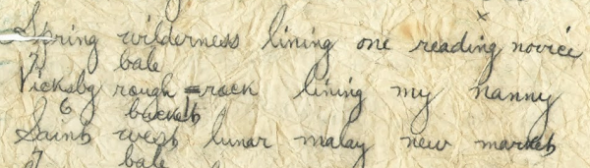 x
Spring wilderness lining one reading novice
7 bale
Vicksbg rough = rock lining my nanny
6 bucket
Saint west lunar malay new market
7 bale